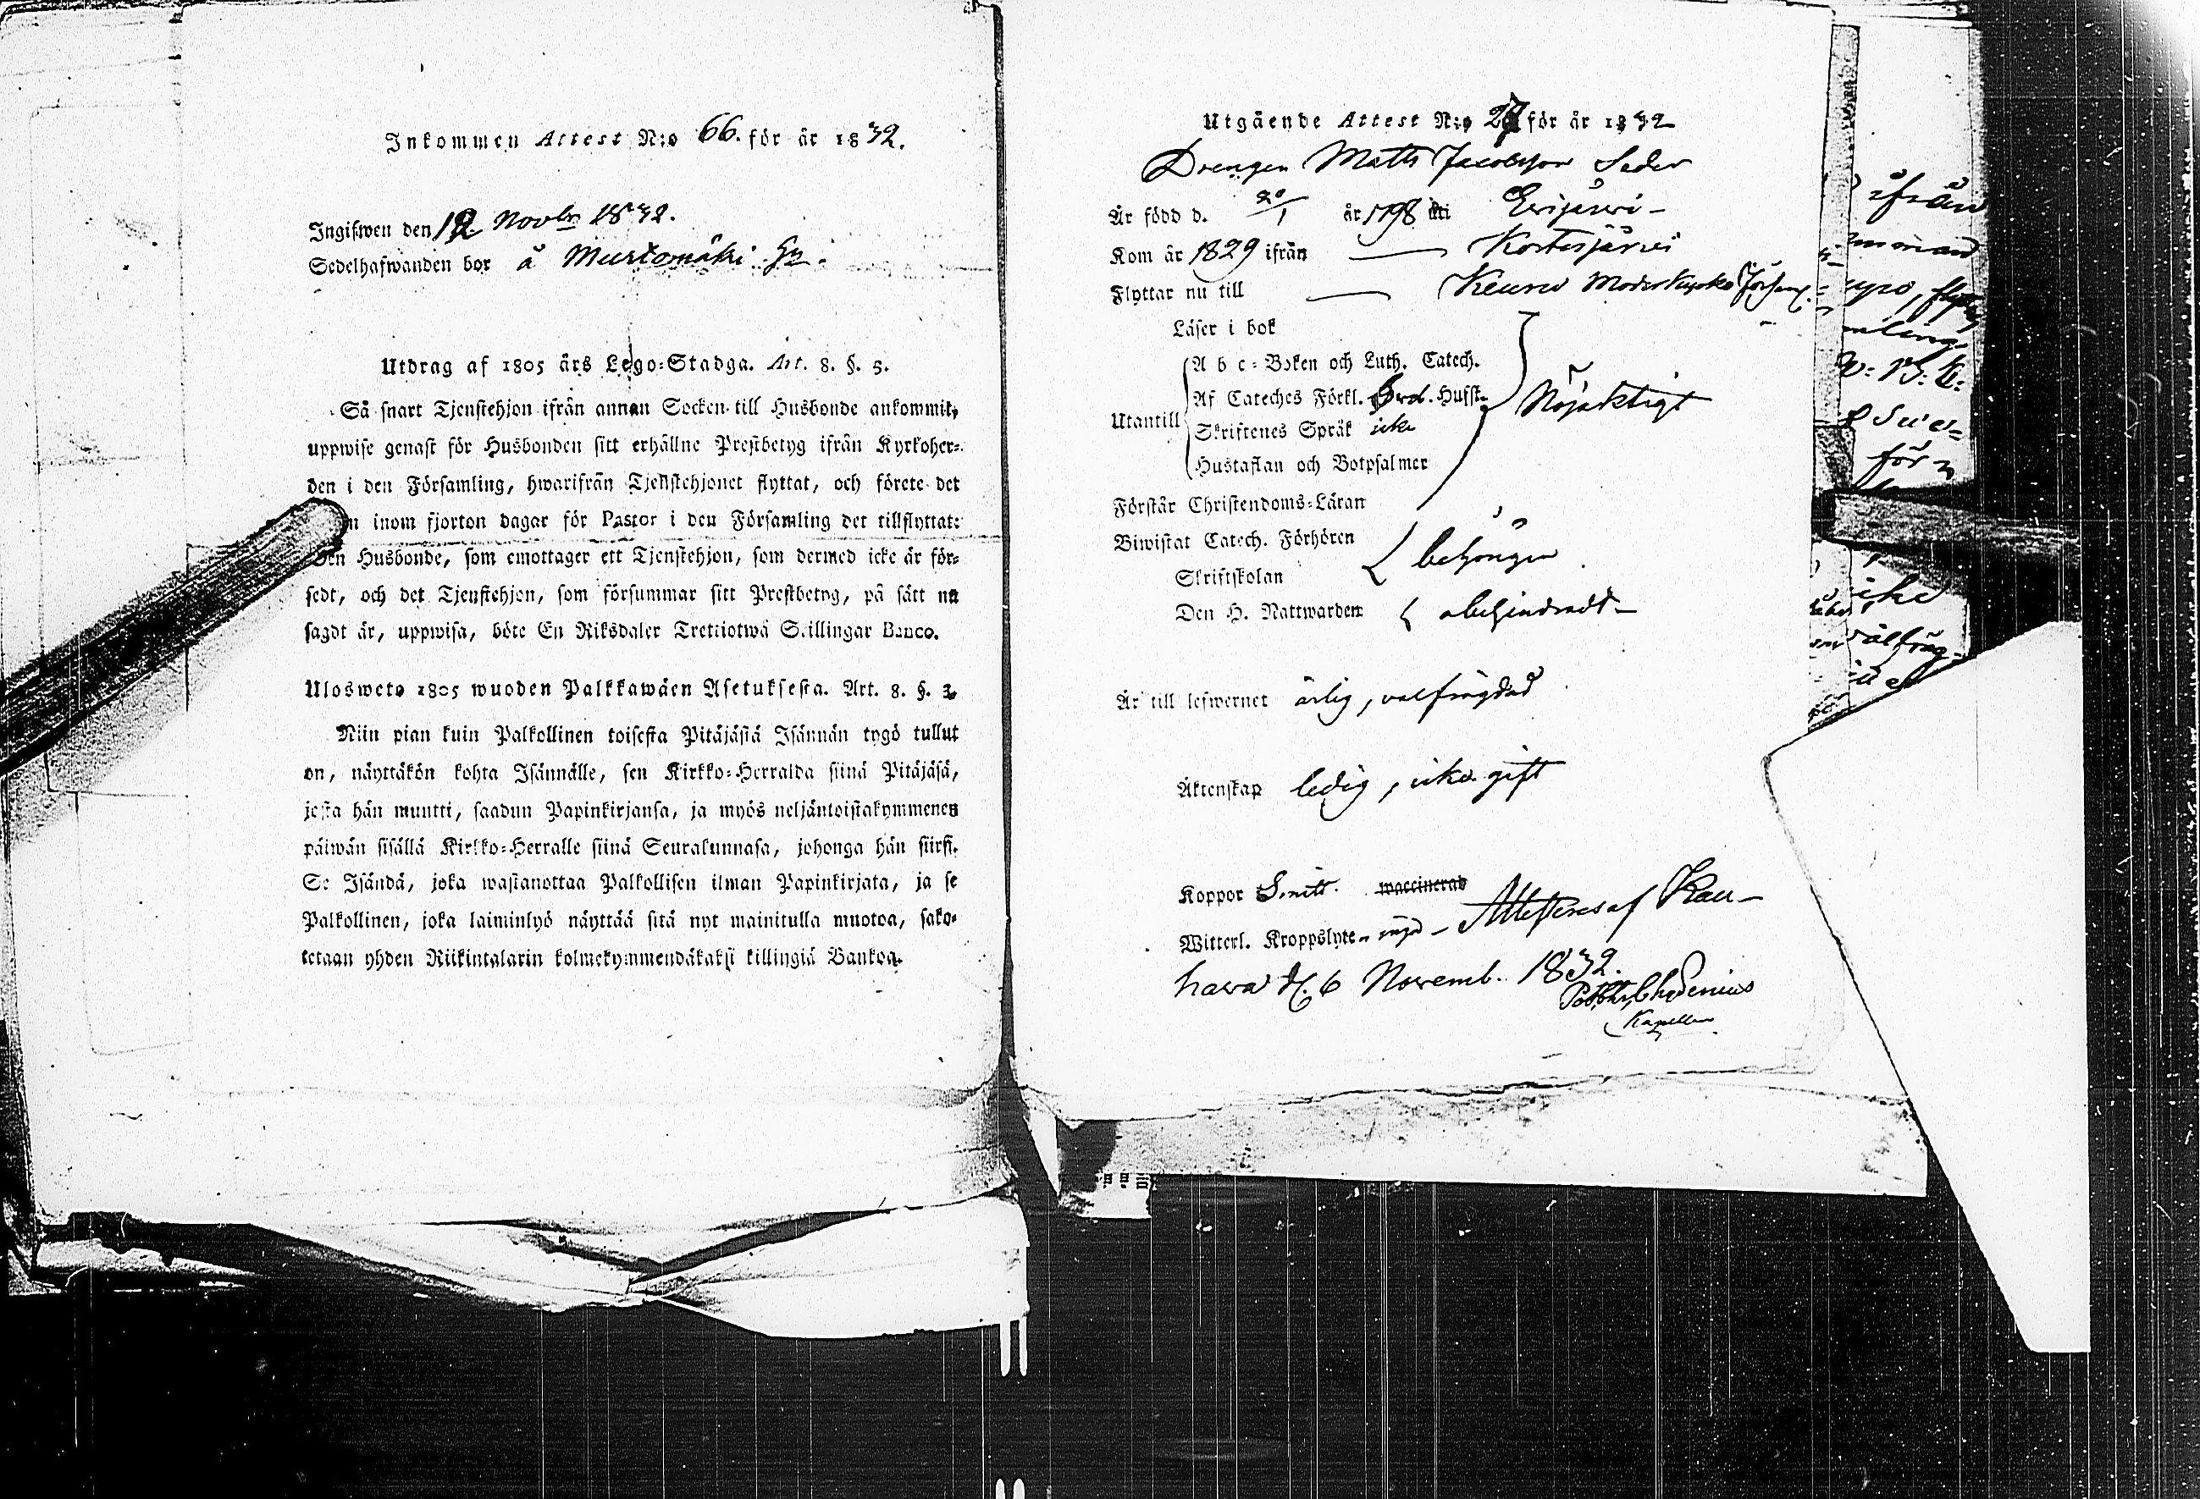 Inkommen Attest N:o 66. för år 1832.
Ingifwen den 12 Novbr 1832.
Sedelhafwanden bor å Murtomäki
Utdrag af 1805 års Lego-Stadga. Art. 8. §. 3.
Så snart Tjenstehjon ifrån annan Socken till Husbonde ankommit,
uppwise genast för Husbonden sitt erhållne Prestbetyg ifrån Kyrkoher-
den i den Församling, hwarifrån Tjenstehjonet flyttat, och förete det
n inom fjorton dagar för Pastor i den Församling det tillflyttat:
Den Husbonde, som emottager ett Tjenstehjon, som dermed icke är för-
sedt, och det Tjenstehjon, som försummar sitt Prestbetyg, på sätt nu
sagdt är, uppwisa, böte En Riksdaler Trettiotwå Skillingar Banco.
Ulosweto 1805 wuoden Palkkawäen Asetuksesta. Art. 8. §. 3.
Niin pian kuin Palkollinen toisesta Pitäjästä Isännän tygö tullut
on, näyttäkön kohta Isännälle, sen Kirkko-Herralda siinä Pitäjäsä,
josta hän muutti, saadun Papinkirjansa, ja myös neljäntoistakymmenen
päiwän sisällä Kirkko-Herralle siinä Seurakunnasa, johonga hän siirsi.
Se Isändä, joka wastanottaa Palkollisen ilman Papinkirjata, ja se
Palkollinen, joka laiminlyö näyttää sitä nyt mainitulla muotoa, sako-
tetaan yhden Riikintalarin kolmekymmendäkaksi killingiä Bankoa.
Utgående Attest N:o 27 för år 1832
Drengen Matts Jacobsson Seder
Är född d. 20/1 år 1798 uti Evijärvi
Kom år 1829 ifrån Kortesjärvi
Flyttar nu till Keuru Moderkyrko Församl.
Läser i bok
A b c-Boken och Luth. Catech.
Af Cateches Förkl. Hufst.
Utantill
Skriftenes Språk icke
Nöjaktigt
Hustaflan och Botpsalmer
Förstår Christendoms-Läran
Biwistat Catech. Förhören
behörigen
Skriftskolan
Den H. Nattwarden obehindradt
Är till lefwernet ärlig, välfrägdad
Äktenskap ledig, icke gift
Koppor Smitt. waccinerad
Witterl. Kroppslyte inga Attesteras af Kau-
hava d. 6 Novemb. 1832.
Chydenius
Kapellan
ifrån
för
icke